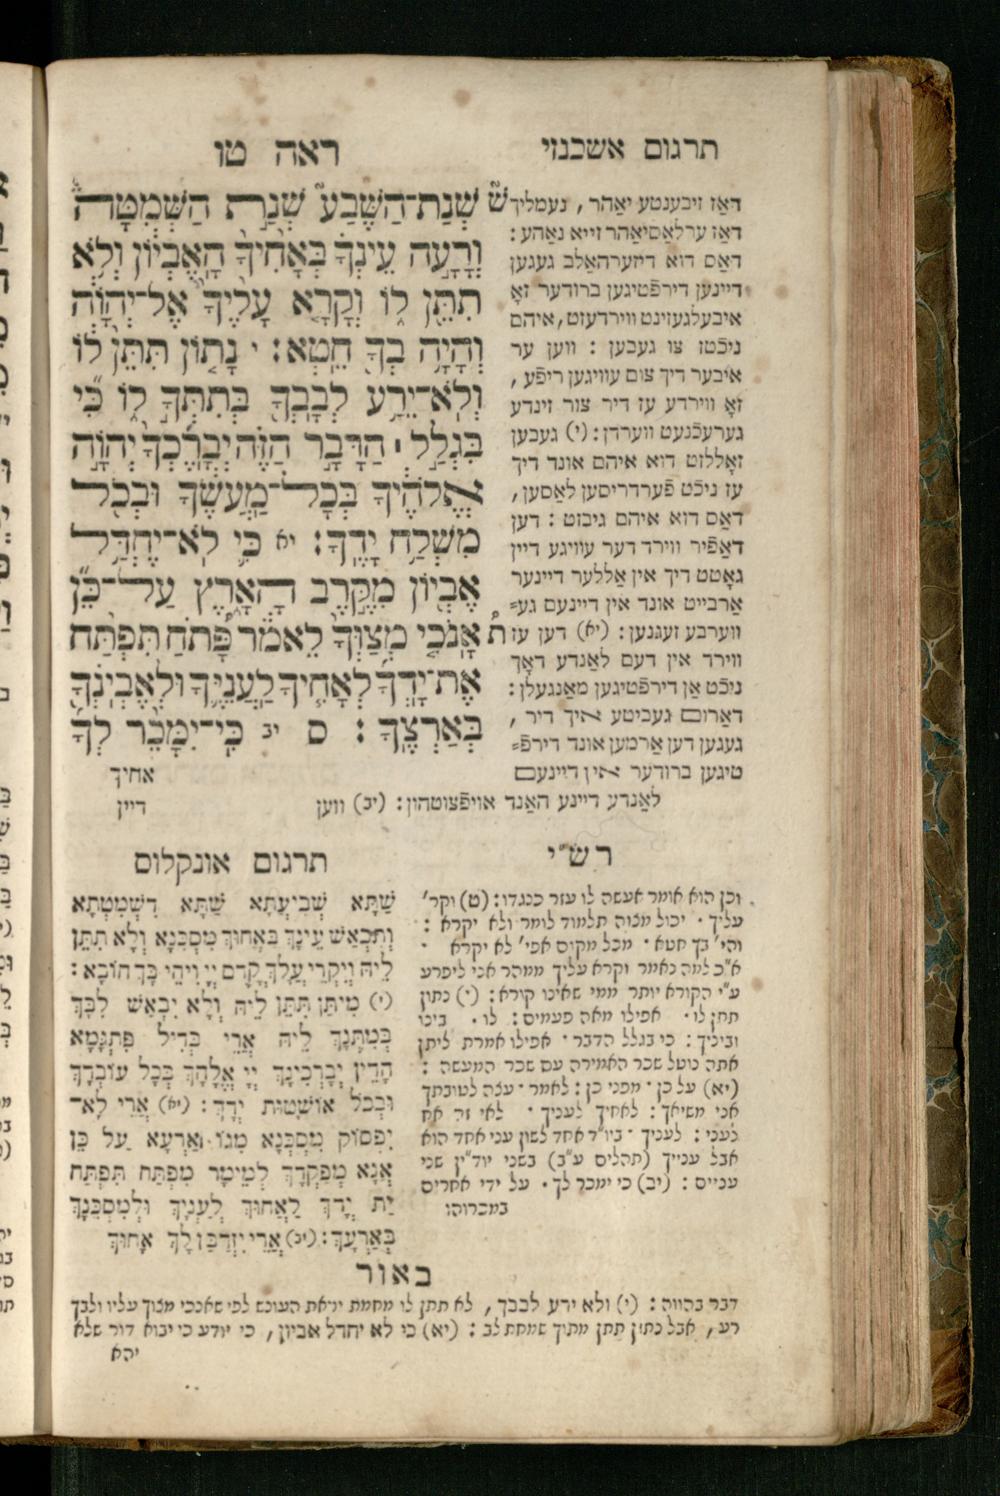 תרגום אשכנזי
ראה טו
שׁ שְׁנַת־הַשֶּׁבַע שְׁנַת הַשְּׁמִטָּה
וְרָעָה עֵינְךָ בְּאָחִיךָ הָאֶבְיוֹן וְלֹא
תִתֵּן לוֹ וְקָרָא עָלֶיךָ אֶל־יְהוָֹה
וְהָיָה בְךָ חֵטְא׃ י נָתוֹן תִּתֵּן לוֹ
וְלֹא־יֵרַע לְבָבְךָ בְּתִתְּךָ לוֹ כִּי
בִּגְלַל ׀ הַדָּבָר הַזֶּה יְבָרֶכְךָ יְהוָֹה
אֱלֹהֶיךָ בְּכָל־מַעֲשֶׂךָ וּבְכֹל
מִשְׁלַח יָדֶךָ׃ יא כִּי לֹא־יֶחְדַּל
אֶבְיוֹן מִקֶּרֶב הָאָרֶץ עַל־כֵּן
ת אָנֹכִי מְצַוְּךָ לֵאמֹר פָּתֹחַ תִּפְתַּח
אֶת־יָדְךָ לְאָחִיךָ לַעֲנִיֶּךָ וּלְאֶבְיֹנְךָ
בְּאַרְצֶךָ׃ ס יב כִּי־יִמָּכֵר לְךָ
אחיך
דאַז זיבענטע יאַהר, נעמליך
דאַז ערלאַסיאַהר זייא נאַהע:
דאַס דוא דיזערהאַלב געגען
דיינען דירפֿטיגען ברודער זאָ
איבעלגעזינט ווירדעזט, איהם
ניכֿטז צו געבען : ווען ער
איבער דיך צום עוויגען ריפֿע,
זאָ ווירדע עז דיר צור זינדע
גערעכֿנעט ווערדן: (י) געבען
זאָללזט דוא איהם אונד דיך
עז ניכֿט פֿערדריסען לאַסען,
דאַס דוא איהם גיבזט : דען
דאַפֿיר ווירד דער עוויגע דיין
גאָטט דיך אין אַללער דיינער
אַרבייט אונד אין דיינעם גע=
ווערבע זעגנען: (יא) דען עז
ווירד אין דעם לאַנדע דאָך
ניכֿט אַן דירפֿטיגען מאַנגעלן:
דאַרום געביטע איך דיר,
געגען דען אַרמען אונד דירפֿ=
טיגען ברודער אין דיינעם
לאַנדע דיינע האַנד אויפֿצוטהון: (יב) ווען
דיין
רש״י
וכן הוא אומר אעשה לו עזר כנגדו: (ט) וקר׳
עליך · יכול מצוה תלמוד לומר ולא יקרא :
והי׳ בך חטא · מכל מקום אפי׳ לא יקרא ·
א״כ למה נאמר וקרא עליך ממהר אני ליפרע
ע״י הקורא יותר ממי שאינו קורא: (י) נתון
תתן לו · אפילו מאה פעמים: לו · בינו
ובינך : כי בגלל הדבר · אפילו אמרת ליתן
אתה נוטל שכר האמירה עם שכר המעשה :
(יא) על כן · מפני כן: לאמר · עצה לטובתך
אני משיאך: לאחיך לעניך · לאי זה אח
לעני: לעניך · ביו״ד אחד לשון עני אחד הוא
אבל ענייך (תהלים ע״ב) בשני יוד״ין שני
עניים : (יב) כי ימכר לך · על ידי אחרים
במכרוהו
תרגום אונקלוס
שַׁתָּא שְׁבִיעָתָא שַׁתָּא דִשְׁמִטְתָא
וְתִבְאֵשׁ עֵינָךְ בַּאֲחוּךְ מִסְכֵּנָא וְלָא תִתֵּן
לֵיהּ וְיִקְרֵי עֲלָךְ קֳדָם יְיָ וִיהֵי בָךְ חוֹבָא :
(י) מִיתַּן תִּתֵּן לֵיהּ וְלָא יִבְאֵשׁ לִבָּךְ
בְּמִתְּנָךְ לֵיהּ אֲרֵי בְּדִיל פִּתְגָּמָא
הָדֵין יְבָרְכִינָךְ יְיָ אֱלָהָךְ בְּכָל עוֹבָדָךְ
וּבְכֹל אוֹשָׁטוּת יְדָךְ : (יא) אֲרֵי לָא־
יִפְסוֹק מִסְכֵּנָא מִגּוֹ אַרְעָא עַל כֵּן
אֲנָא מְפַקְּדָךְ לְמֵימָר מִפְתַּח תִּפְתַּח
יַת יְדָךְ לַאֲחוּךְ לְעַנְיָךְ וּלְמִסְכֵּנָךְ
בְּאַרְעָךְ: (יב) אֲרֵי יִזְדַּבַּן לָךְ אֲחוּךְ
באור
דבר בהווה : (י) ולא ירע לבבך, לא תתן לו מחמת יראת העונש לפי שאנכי מצוך עליו ולבך
רע, אבל נתון תתן מתוך שמחת לב : (יא) כי לא יחדל אביון, כי יודע כי יבוא דור שלא
יהא